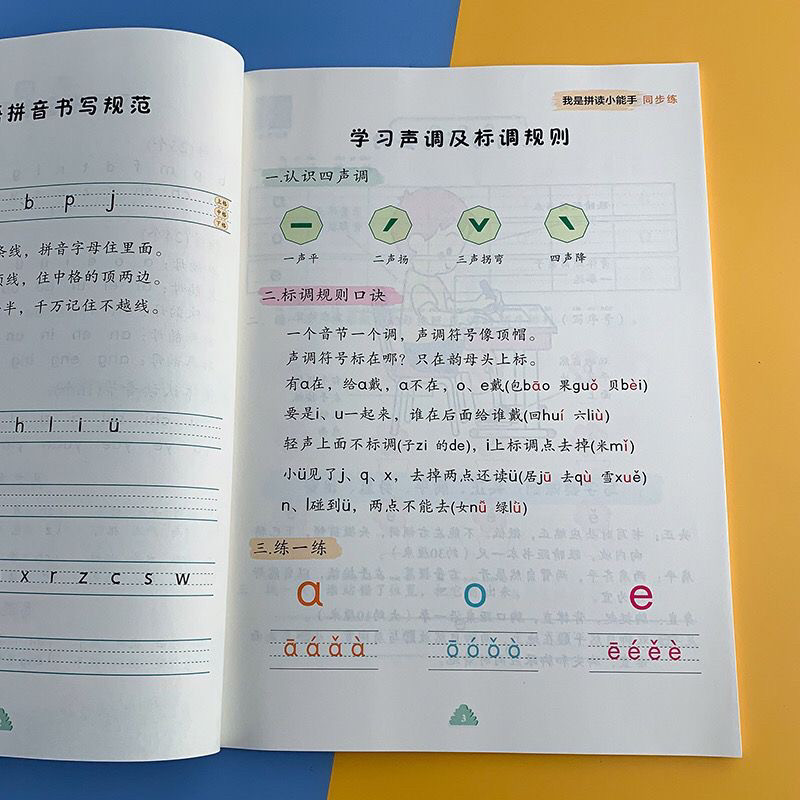 拼音书写规范
b p j
上格
中格
下格
条线，拼音字母住里面。
线，住中格的顶两边。
半，千万记住不越线。
h l i ü
x r z c s w
我是拼读小能手 同步练
学习声调及标调规则
一.认识四声调
一声平 二声扬 三声拐弯 四声降
二.标调规则口诀
一个音节一个调，声调符号像顶帽。
声调符号标在哪？只在韵母头上标。
有ɑ在，给ɑ戴，ɑ不在，o、e戴(包bāo 果guǒ 贝bèi)
要是i、u一起来，谁在后面给谁戴(回huí 六liù)
轻声上面不标调(子zi 的de)，i上标调点去掉(米mǐ)
小ü见了j、q、x，去掉两点还读ü(居jū 去qù 雪xuě)
n、l碰到ü，两点不能去(女nǚ 绿lǜ)
三.练一练
ɑ o e
ā á ǎ à ō ó ǒ ò ē é ě è
3